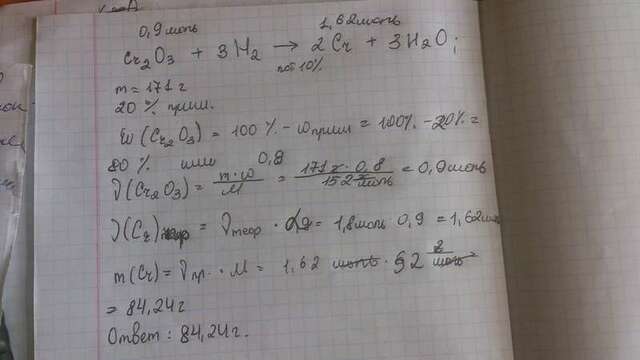 0,9 моль 1,62 моль
Cr₂O₃ + 3H₂ → 2Cr + 3H₂O;
пот 10%
m = 171 г
20 % прим.
ω(Cr₂O₃) = 100 % - ω прим = 100% - 20% =
80 % или 0,8
ν(Cr₂O₃) = m·ω/M = 171 г · 0,8/152 г/моль = 0,9 моль
ν(Cr) = ν теор · = 1,8 моль 0,9 = 1,62 моль
m(Cr) = ν пр. · M = 1,62 моль · 52 г/моль
= 84,24 г
Ответ: 84,24 г.